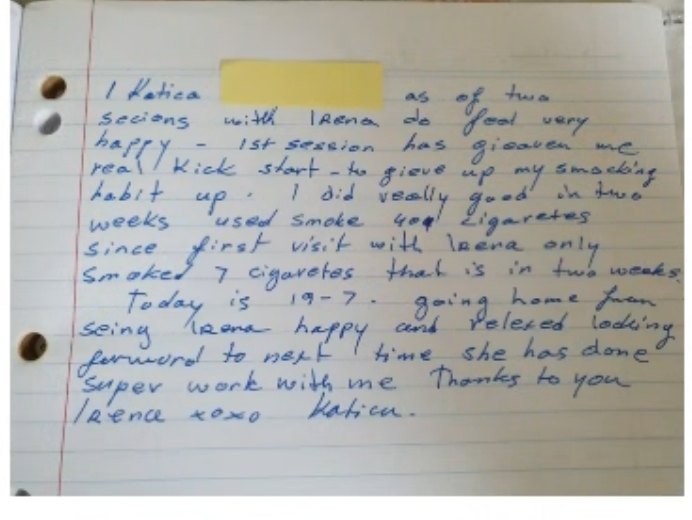 I Katica as of two
secions with Irena do feel very
happy - 1st session has gieaven me
real Kick start - to gieve up my smocking
habit up. I did really good in two
weeks used smoke 400 cigaretes
since first visit with Irena only
Smoked 7 cigaretes that is in two weeks.
Today is 19-7. going home from
seing Irena happy and relexed looking
forword to next time she has done
super work with me Thanks to you
Irena xoxo Katica.